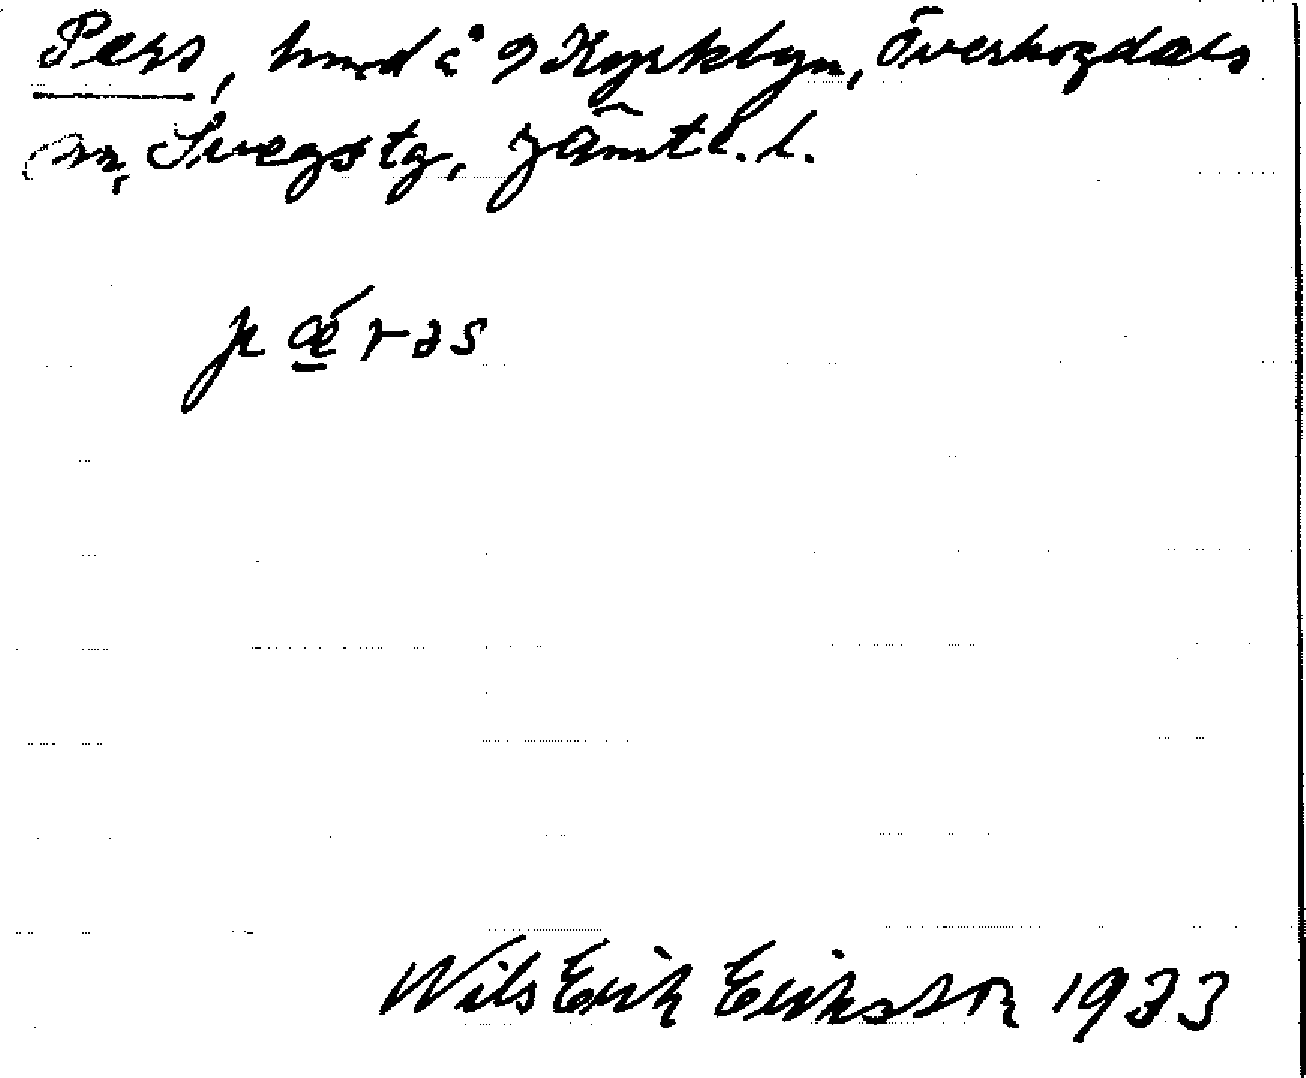 Pers, hmd å 9 Kyrkbyn, Överhogdals
sn, Svegs tg, Jämtl. l.
pǽ̱rəs
Nils Erik Eriksson 1933